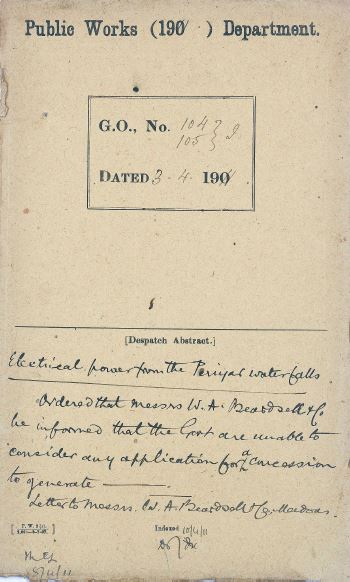 Public Works (190 ) Department.
G.O., No. 104
105 } I.
DATED 3 - 4 - 190
[Despatch Abstract.]
Electrical power from the Periyar waterfalls.
Ordered that messrs W. A. Beardsell & Co
be informed that the Govt are unable to
consider any application for a concession
to generate ———
Letter to Messrs. W. A. Beardsell & Co, Madras.
Indexed 10/4/11
8/4/11